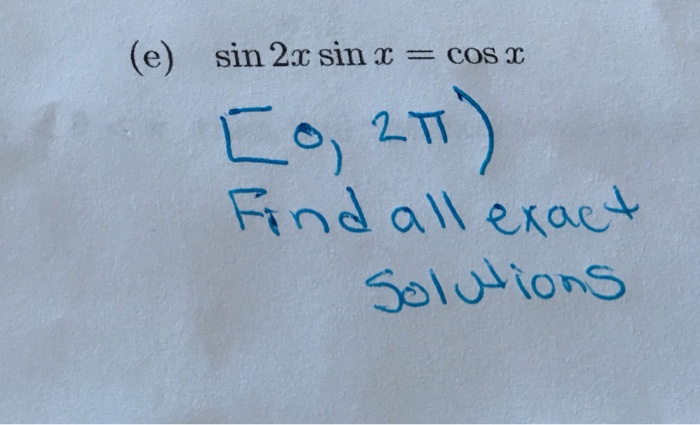 (e) sin 2x sin x = cos x
[0, 2π)
Find all exact
Solutions